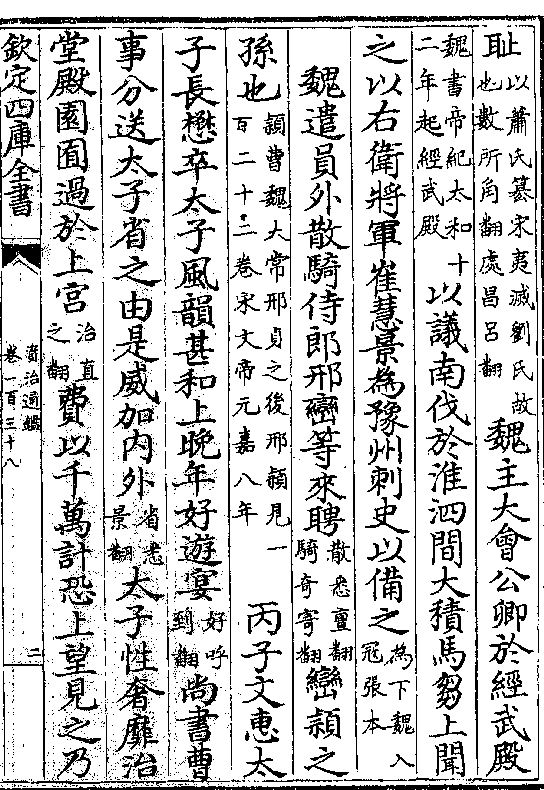 耻以蕭氏篡宋夷滅劉氏故也數所角翻處昌呂翻魏主大會公卿於經武殿
魏書帝紀太和十二年起經武殿以議南伐於淮泗間大積馬芻上聞
之以右衛將軍崔慧景為豫州刺史以備之為下魏入寇張本
魏遣員外散騎侍郎邢巒等來聘散悉亶翻騎奇寄翻巒潁之
孫也潁曹魏大常邢貞之後邢潁見一百二十二卷宋文帝元嘉八年丙子文惠太
子長懋卒太子風韻甚和上晚年好遊宴好呼到翻尚書曹
事分送太子省之由是威加内外省悉景翻太子性奢靡治
堂殿園囿過於上宫治直之翻費以千萬計恐上望見之乃
欽定四庫全書
資治通鑑
卷一百三十八
二